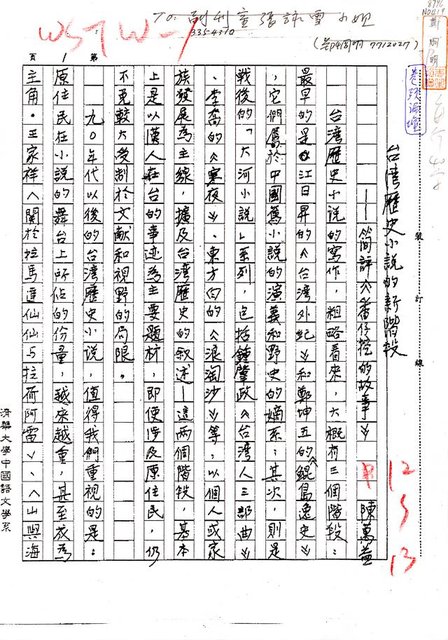 To. 副刊室張詠雪小姐
3354310
(若4周明 7712027)
WSTW-1
台灣歷史小說的新階段
——簡評《番仔挖的故事》
陳萬益
台灣歷史小說的寫作,粗略看來,大概有三個階段:
最早的是江日昇的《台灣外紀》和鄭坤五的《鯤島逸史》
,它們屬於中國舊小說的演義和野史的嫡系;其次,則是
戰後的「大河小說」系列,包括鍾肇政《台灣人三部曲》
、李喬的《寒夜》、東方白的《浪淘沙》等,以個人或家
族發展為主線,擴及台灣歷史的敘述—這兩個階段,基本
上是以漢人在台的事迹為主要題材,即便涉及原住民,仍
不免較大受制於文獻和視野的局限。
九0年代以後的台灣歷史小說,值得我們重視的是:
原住民在小說的舞台上所佔的份量,越來越重,甚至成為
主角。王家祥《關於拉馬達仙仙與拉荷阿雷》、《山與海
頁 1 第
裝 訂 線
清華大學中國語文學系
12
5
13